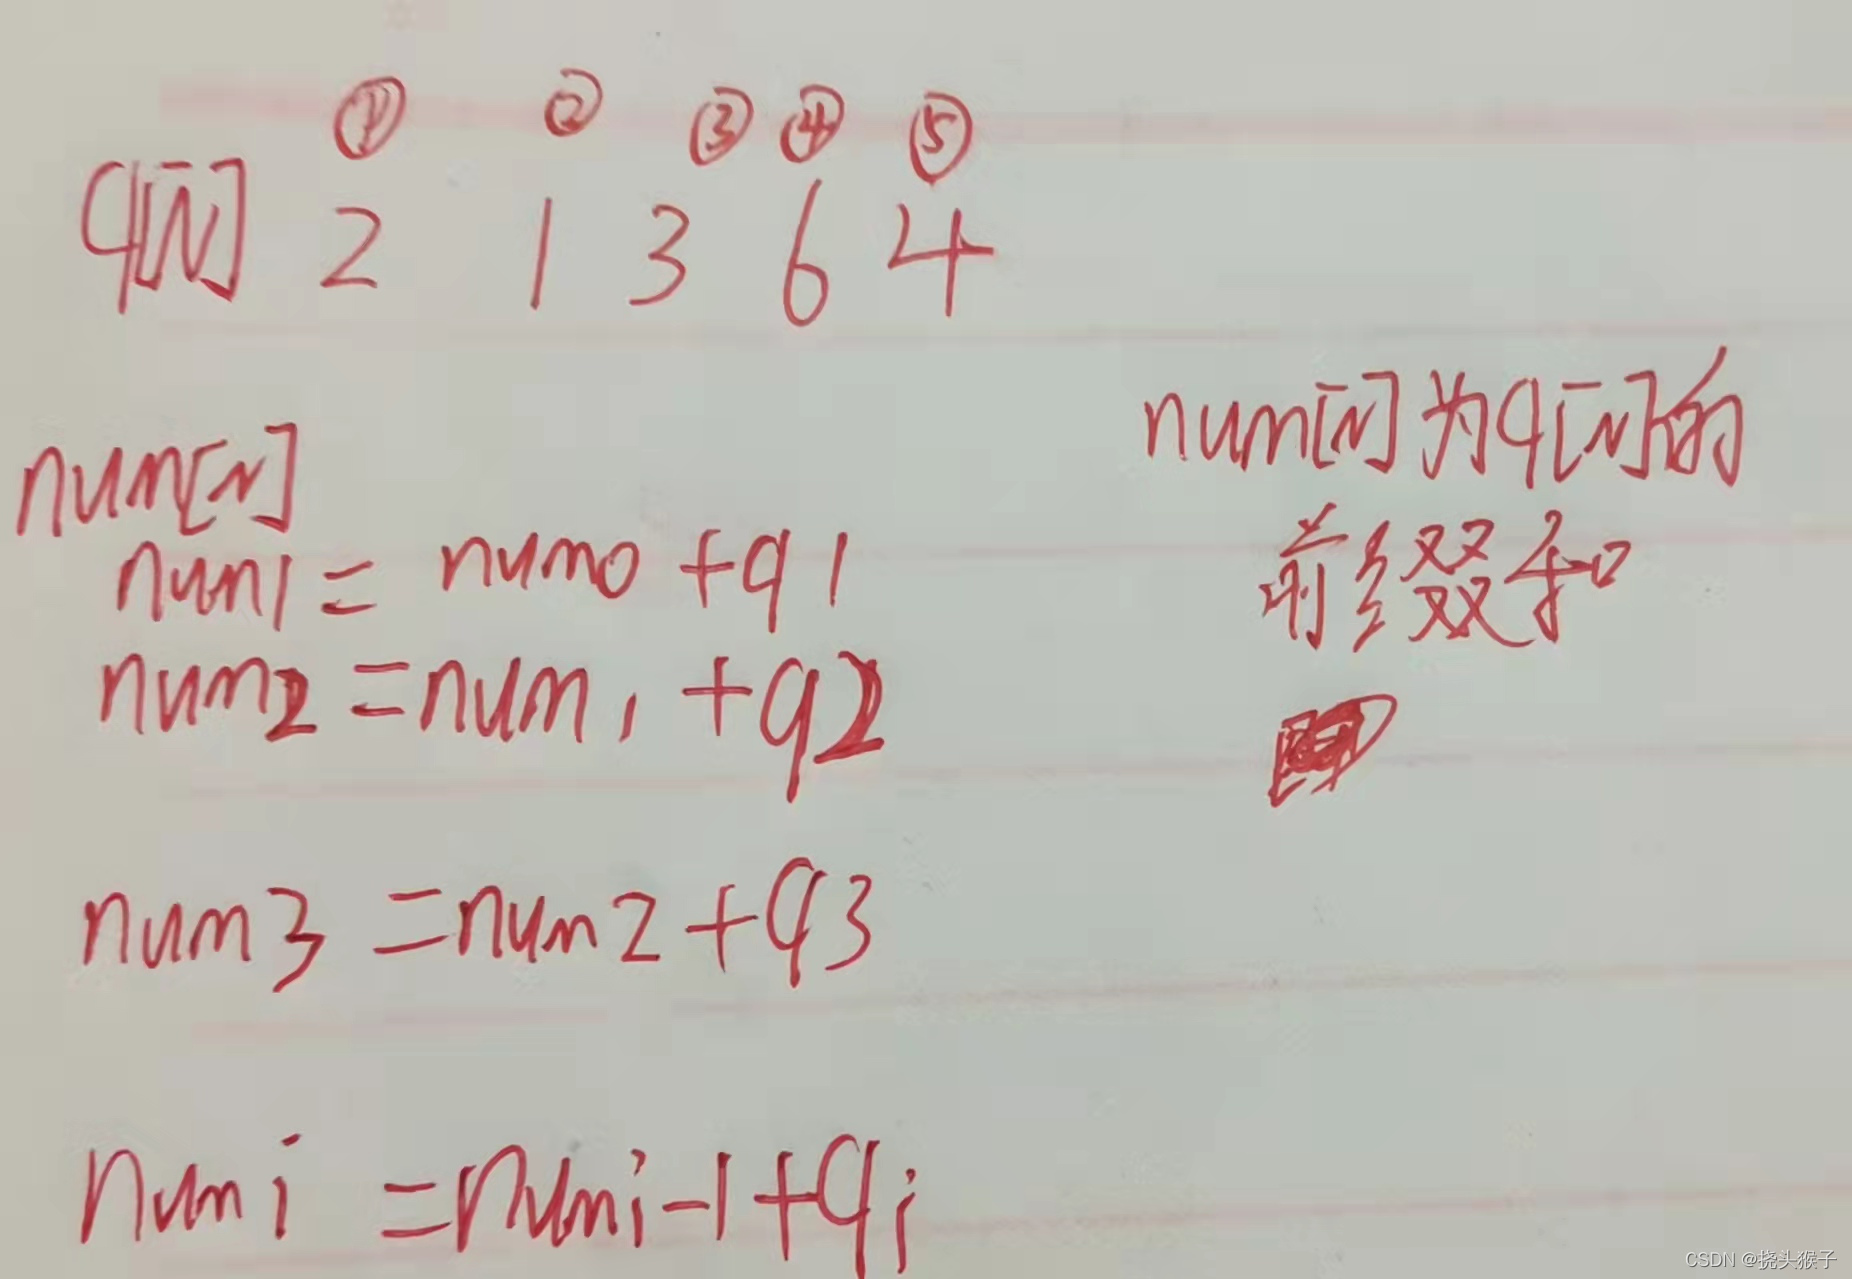 ① ② ③ ④ ⑤
q[N] 2 1 3 6 4
num[N]
num1 = num0 + q1
num2 = num1 + q2
num3 = num2 + q3
numi = numi-1 + qi
num[N]为q[N]的
前缀和
CSDN @挠头猴子